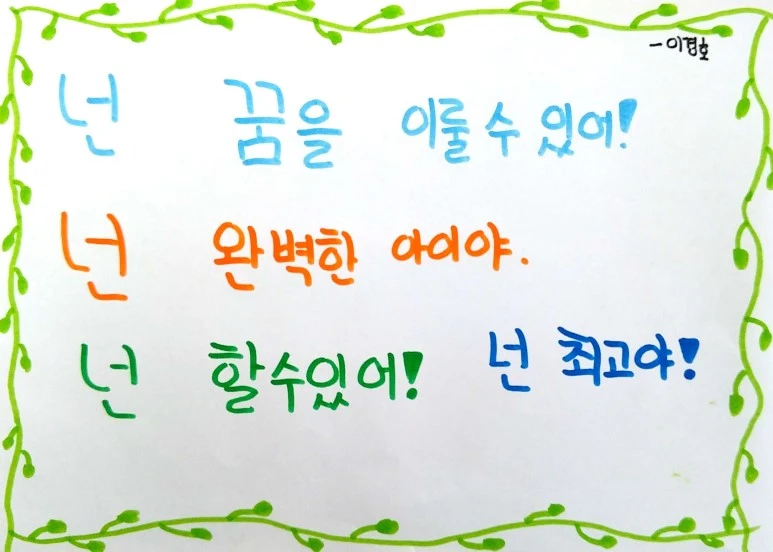 - 이경호
넌 꿈을 이룰 수 있어!
넌 완벽한 아이야.
넌 할 수 있어! 넌 최고야!